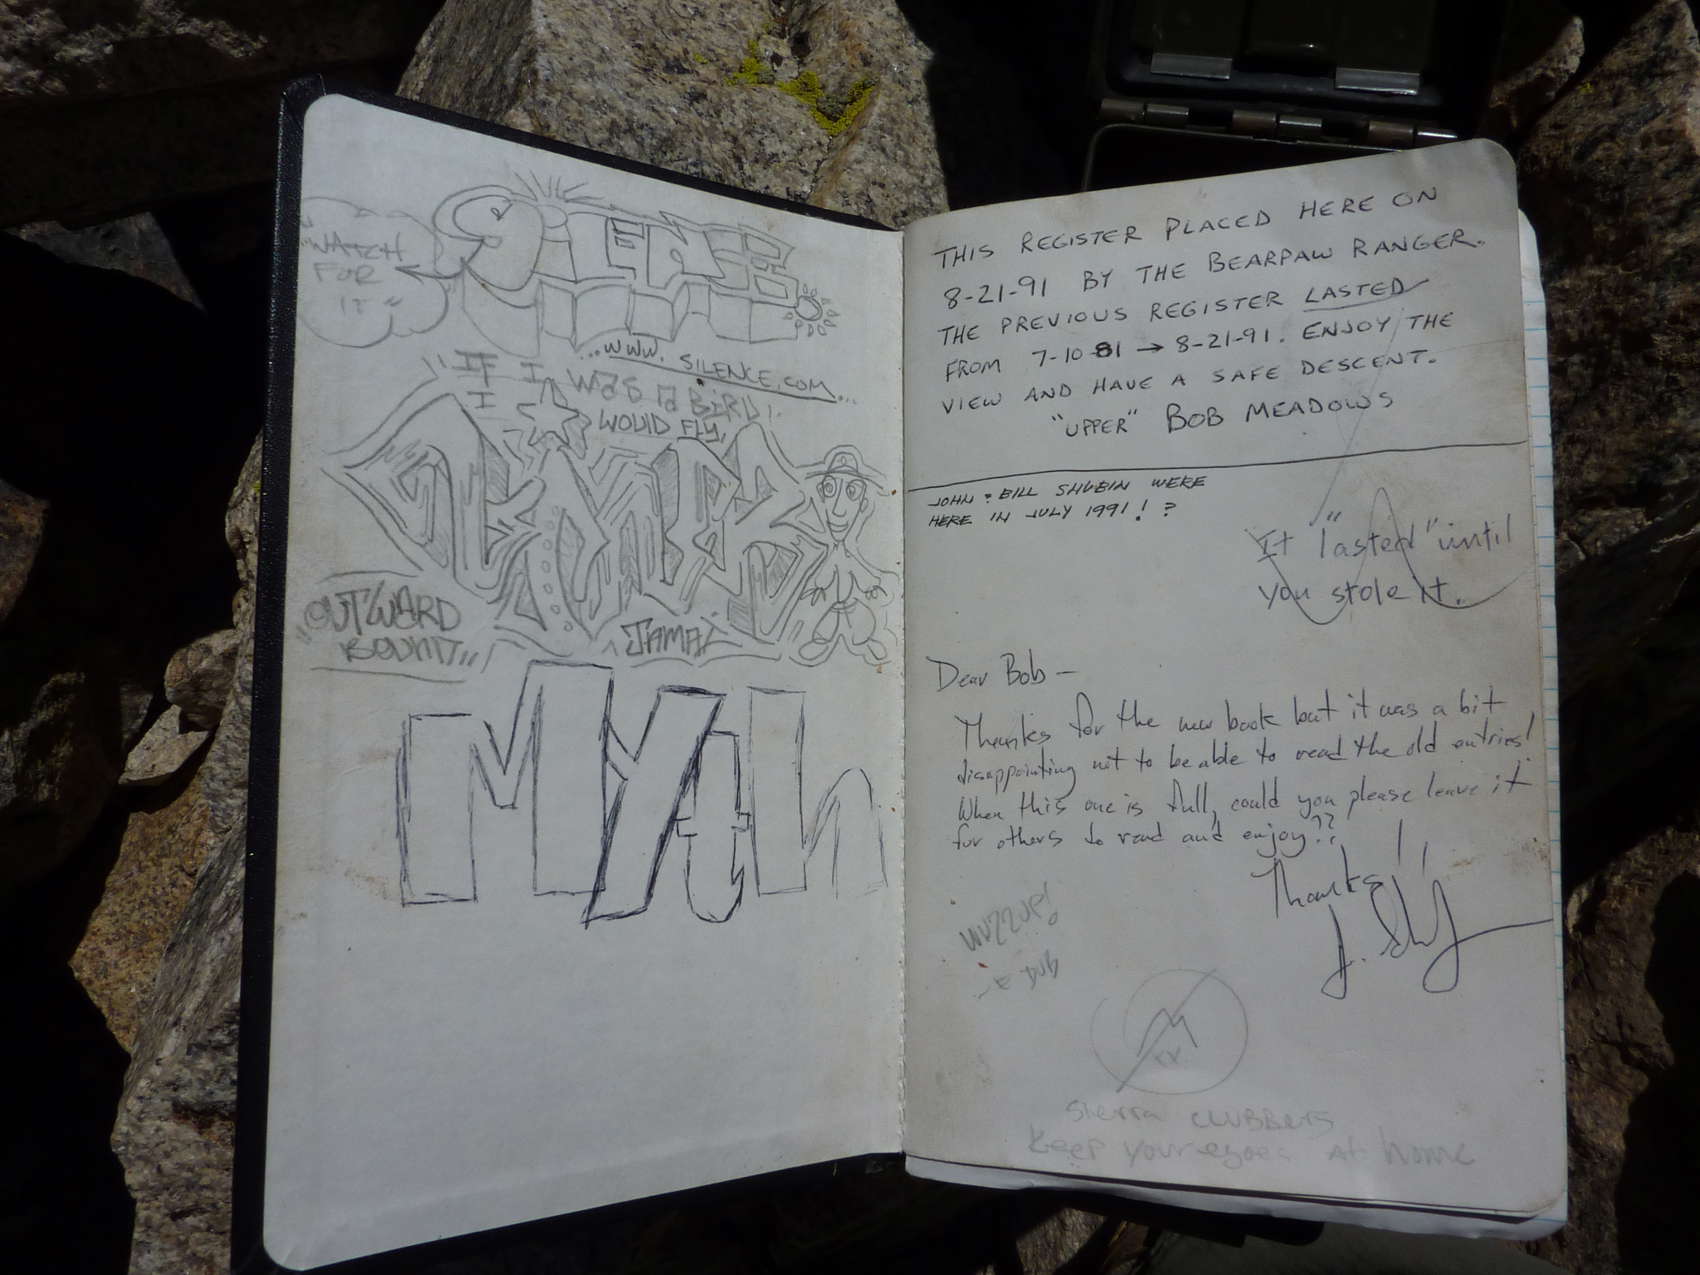 SILENCE
"WATCH
FOR
IT"
...WWW. SILENCE.COM...
"IF I WAS A BIRD,
I WOULD FLY,
"OUTWARD
BOUND"
JAMAL
MYAH
THIS REGISTER PLACED HERE ON
8-21-91 BY THE BEARPAW RANGER.
THE PREVIOUS REGISTER LASTED
FROM 7-10-81 → 8-21-91. ENJOY THE
VIEW AND HAVE A SAFE DESCENT.
"UPPER" BOB MEADOWS
JOHN & BILL SHUBIN WERE
HERE IN JULY 1991! ?
It "lasted" until
you stole it.
Dear Bob —
Thanks for the new book but it was a bit
disappointing not to be able to read the old entries!
When this one is full, could you please leave it
for others to read and enjoy??
Thanks!!
WUZZUP!
Sierra CLUBBERS
Keep your egoes At home